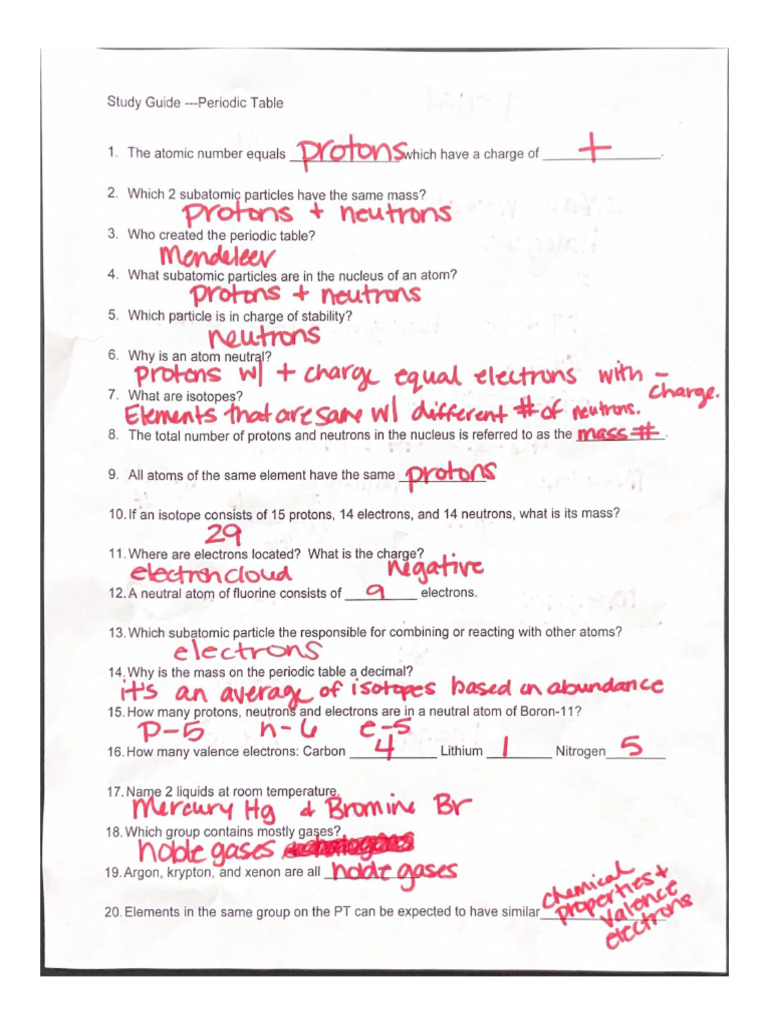 Study Guide ---Periodic Table
1. The atomic number equals protons which have a charge of +.
2. Which 2 subatomic particles have the same mass?
protons + neutrons
3. Who created the periodic table?
Mendeleev
4. What subatomic particles are in the nucleus of an atom?
protons + neutrons
5. Which particle is in charge of stability?
neutrons
6. Why is an atom neutral?
protons w/ + charge equal electrons with - charge.
7. What are isotopes?
Elements that are same w/ different # of neutrons.
8. The total number of protons and neutrons in the nucleus is referred to as the mass #.
9. All atoms of the same element have the same protons
10. If an isotope consists of 15 protons, 14 electrons, and 14 neutrons, what is its mass?
29
11. Where are electrons located? What is the charge?
electron cloud negative
12. A neutral atom of fluorine consists of 9 electrons.
13. Which subatomic particle the responsible for combining or reacting with other atoms?
electrons
14. Why is the mass on the periodic table a decimal?
it's an average of isotopes based on abundance
15. How many protons, neutrons and electrons are in a neutral atom of Boron-11?
P-5 n-6 e-5
16. How many valence electrons: Carbon 4 Lithium 1 Nitrogen 5
17. Name 2 liquids at room temperature.
Mercury Hg & Bromine Br
18. Which group contains mostly gases?
noble gases
19. Argon, krypton, and xenon are all noble gases
20. Elements in the same group on the PT can be expected to have similar chemical properties + valence electrons